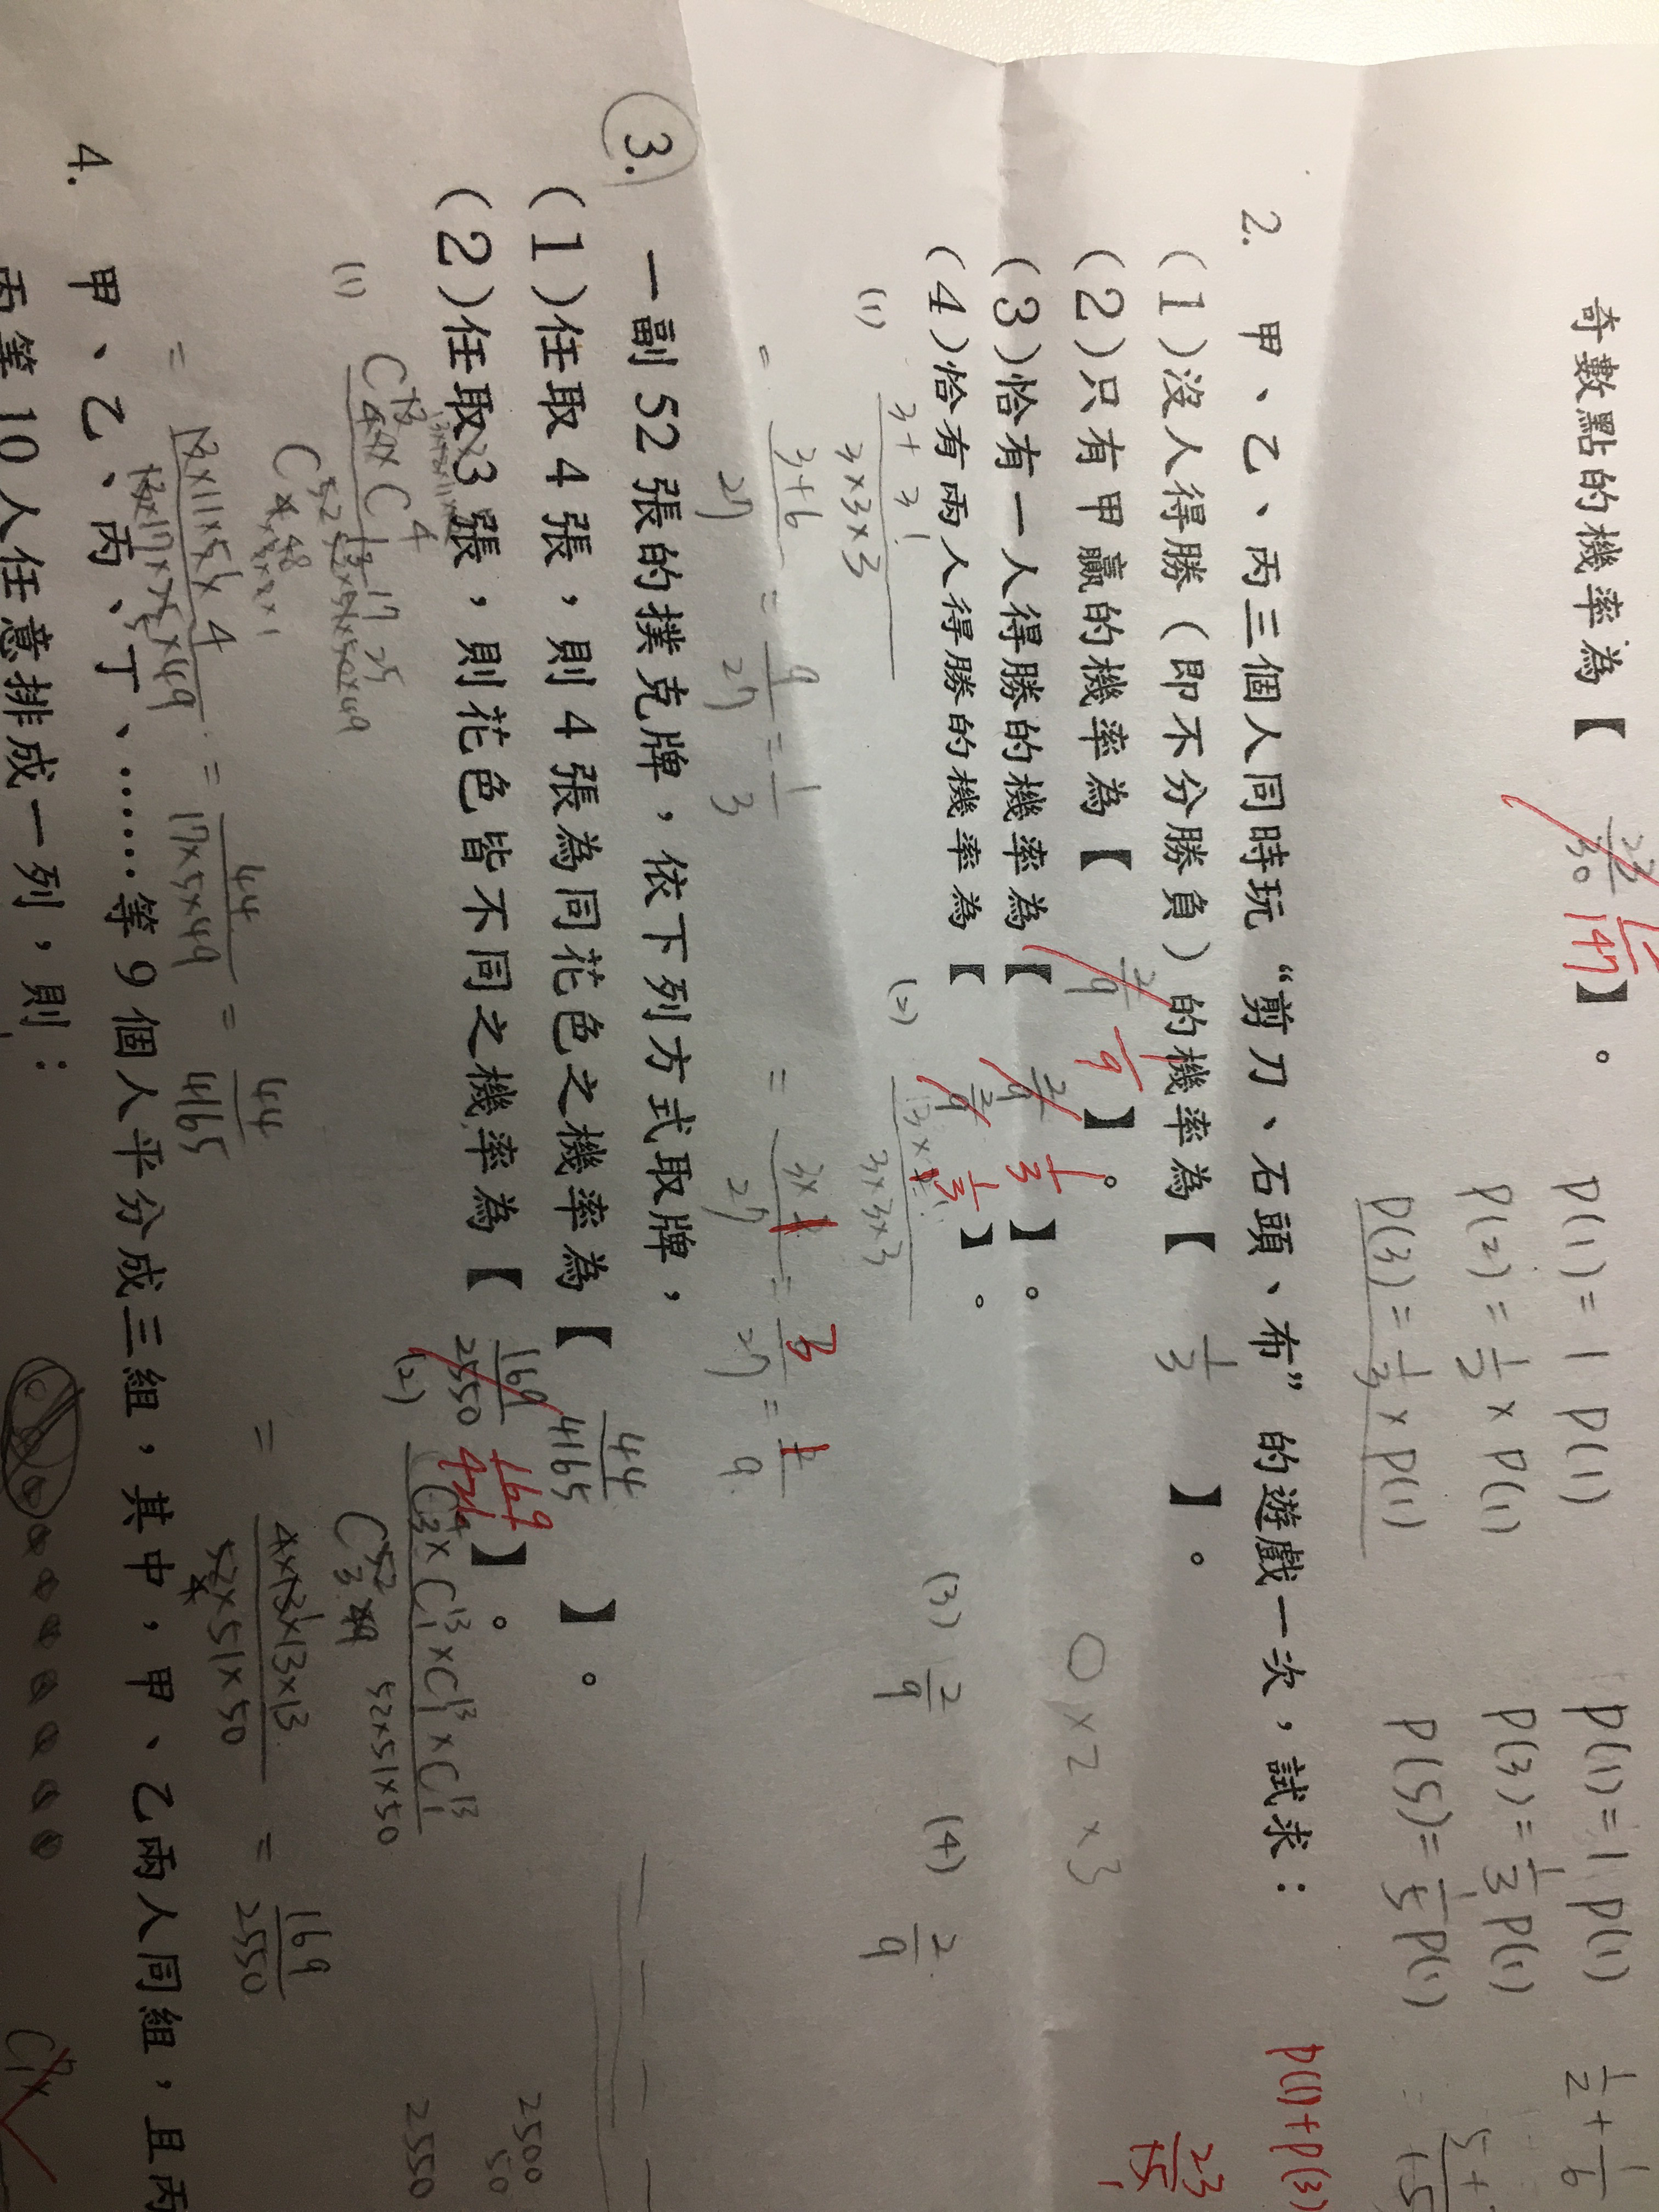 奇數點的機率為【 23/30 】。
P(1) = 1 P(1)
P(2) = 1/2 × P(1)
P(3) = 1/3 × P(1)
P(1) = 1 P(1)
P(3) = 1/3 P(1)
P(5) = 1/5 P(1)
P(1)+P(3)
23/15
2. 甲、乙、丙三個人同時玩“剪刀、石頭、布”的遊戲一次,試求:
(1)沒人得勝(即不分勝負)的機率為【 1/3 】。
(2)只有甲贏的機率為【 2/9 1/9 】。
(3)恰有一人得勝的機率為【 2/9 1/3 】。
(4)恰有兩人得勝的機率為【 2/9 1/3 】。
○×2×3
(1) 3+3! / 3×3×3
= 3+6 / 27 = 9/27 = 1/3
(2) 3×3×3
= 3×1 / 27 = 3/27 = 1/9
(3) 2/9
(4) 2/9
3. 一副52張的撲克牌,依下列方式取牌,
(1)任取4張,則4張為同花色之機率為【 44/4165 】。
(2)任取3張,則花色皆不同之機率為【 169/2550 169/425 】。
(1)
= 44 / 17×5×49 = 44/4165
(2) C4 3 × C13 1 × C13 1 × C13 1 / C52 3
52×51×50
= 4×13×13×13 / 52×51×50 = 169/2550
2500
50
2550
4. 甲、乙、丙、丁、……等9個人平分成三組,其中,甲、乙兩人同組,且丙
丙等10人任意排成一列,則: